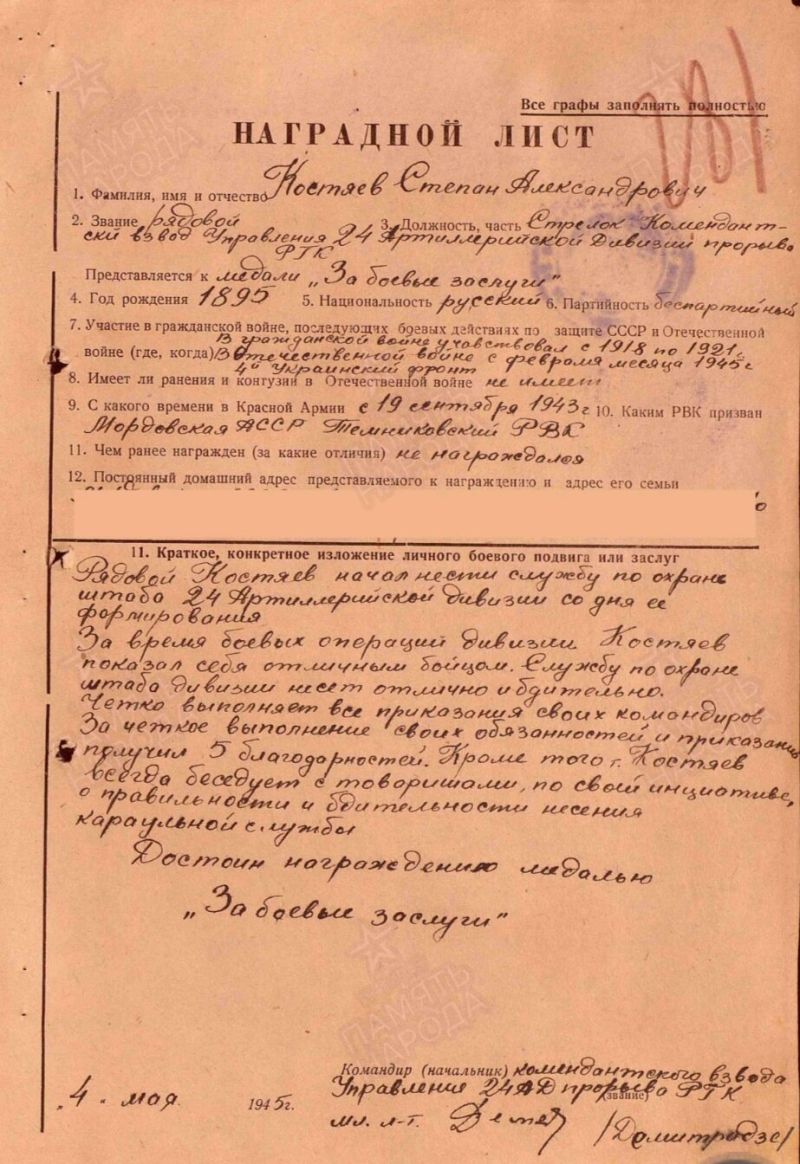 Все графы заполнять полностью
НАГРАДНОЙ ЛИСТ
1. Фамилия, имя и отчество Костяев Степан Александрович
2. Звание рядовой 3. Должность, часть Стрелок Комендант-
ский взвод Управления 24 Артиллерийской Дивизии прорыва
РГК
Представляется к медали „За боевые заслуги"
4. Год рождения 1895 5. Национальность русский 6. Партийность беспартийный
7. Участие в гражданской войне, последующих боевых действиях по защите СССР и Отечественной
В гражданской войне учавствовал с 1918 по 1921г.
войне (где, когда) В Отечественной войне с февроля месяца 1945г
4й Украинский фронт
8. Имеет ли ранения и контузии в Отечественной войне не имеет
9. С какого времени в Красной Армии с 19 сентября 1943г 10. Каким РВК призван
Мордовская АССР Темниковский РВК
11. Чем ранее награжден (за какие отличия) не награждался
12. Постоянный домашний адрес представляемого к награждению и адрес его семьи
11. Краткое, конкретное изложение личного боевого подвига или заслуг
Рядовой Костяев начал нести службу по охране
штаба 24 Артиллерийской дивизии со дня ее
формирования
За время боевых операций дивизии Костяев
показал себя отличным бойцом. Службу по охране
штаба дивизии несет отлично и бдительно.
Четко выполняет все приказания своих командиров
За четкое выполнение своих обязанностей и приказаний
получил 5 благодарностей. Кроме того т. Костяев
всегда беседует с товорищами, по своей инциативе,
о правильности и бдительности несения
караульной службы
Достоин награждению медалью
„За боевые заслуги"
Командир (начальник) комендантского взвода
Управления 24 АД прорыва РГК
(звание)
„4" мая 1945г. мл. л-т.
ПАМЯТЬ НАРОДА